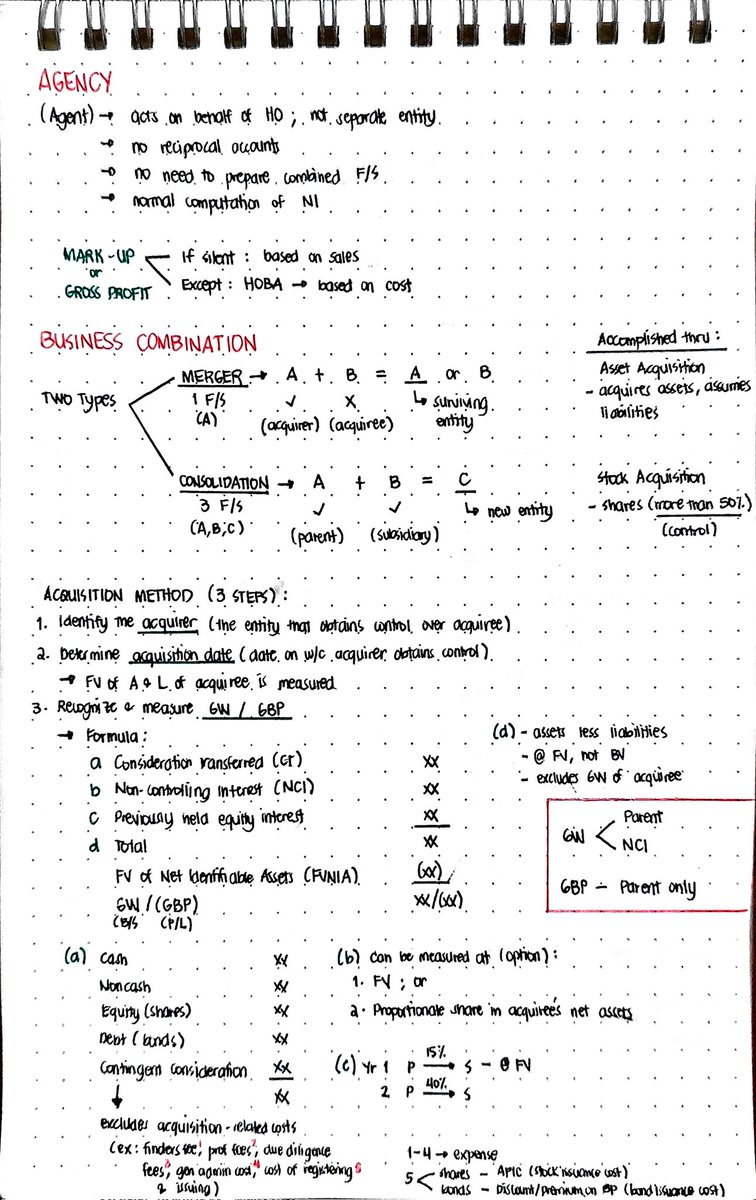 AGENCY
(Agent) → acts on behalf of HO ; not separate entity
→ no reciprocal accounts
→ no need to prepare combined F/S
→ normal computation of NI
MARK-UP or GROSS PROFIT
If silent : based on sales
Except : HOBA → based on cost
BUSINESS COMBINATION
Accomplished thru :
TWO TYPES
MERGER → A + B = A or B
1 F/S ✓ X ↳ surviving entity
(A) (acquirer) (acquiree)
Asset Acquisition
- acquires assets, assumes liabilities
CONSOLIDATION → A + B = C
3 F/S ✓ ✓ ↳ new entity
(A,B,C) (parent) (subsidiary)
Stock Acquisition
- shares (more than 50%)
(control)
ACQUISITION METHOD (3 STEPS) :
1. Identify the acquirer (the entity that obtains control over acquiree)
2. Determine acquisition date (date on w/c acquirer obtains control)
→ FV of A & L of acquiree is measured
3. Recognize & measure GW / GBP
→ Formula :
a Consideration transferred (CT) xx
b Non-controlling Interest (NCI) xx
c Previously held equity interest xx
d Total xx
FV of Net Identifiable Assets (FVNIA) (xx)
GW / (GBP) xx/(xx)
(B/S) (P/L)
(d) - assets less liabilities
- @ FV, not BV
- excludes GW of acquiree
GW < Parent
NCI
GBP - Parent only
(a) Cash xx
Noncash xx
Equity (shares) xx
Debt (bonds) xx
Contingent consideration xx
xx
excludes acquisition-related costs
(ex: finders fee¹, prof fees², due diligence
fees³, gen admin cost⁴, cost of registering⁵
& issuing)
(b) can be measured at (option) :
1. FV ; or
2. Proportionate share in acquiree's net assets
(c) Yr 1 P 15% → S - @ FV
2 P 40% → S
1-4 → expense
5 < shares - APIC (stock issuance cost)
bonds - Discount/premium on BP (bond issuance cost)